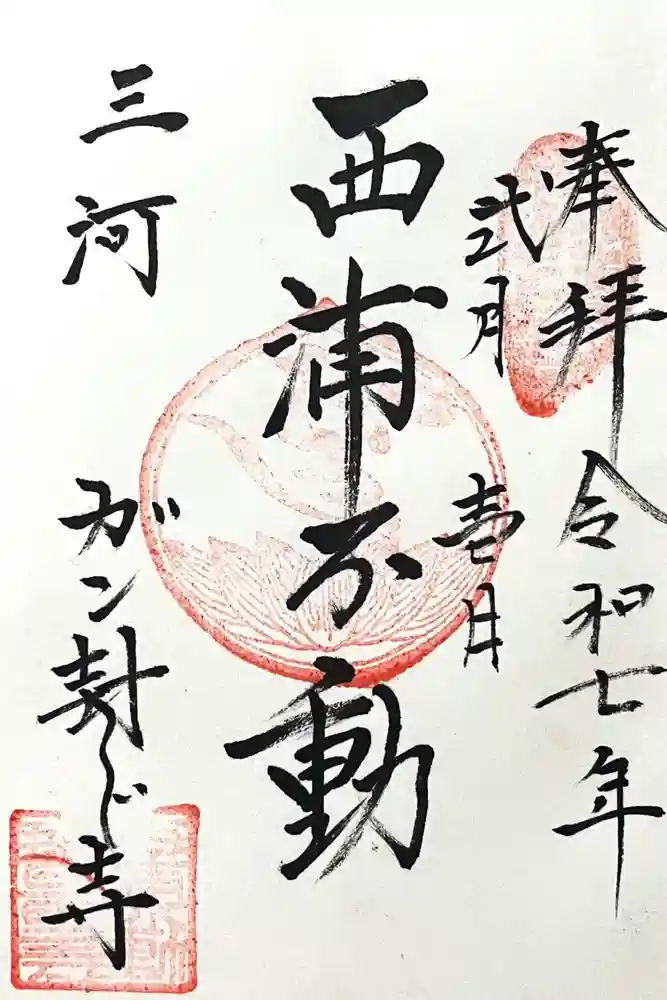 奉拝 令和七年
弐月
壱日
西浦不動
三河
ガン封じ寺